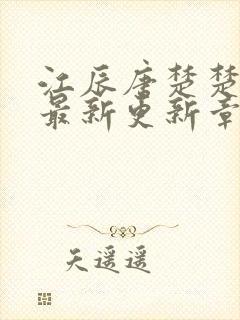 江辰唐楚楚
最新更新章
天遥遥